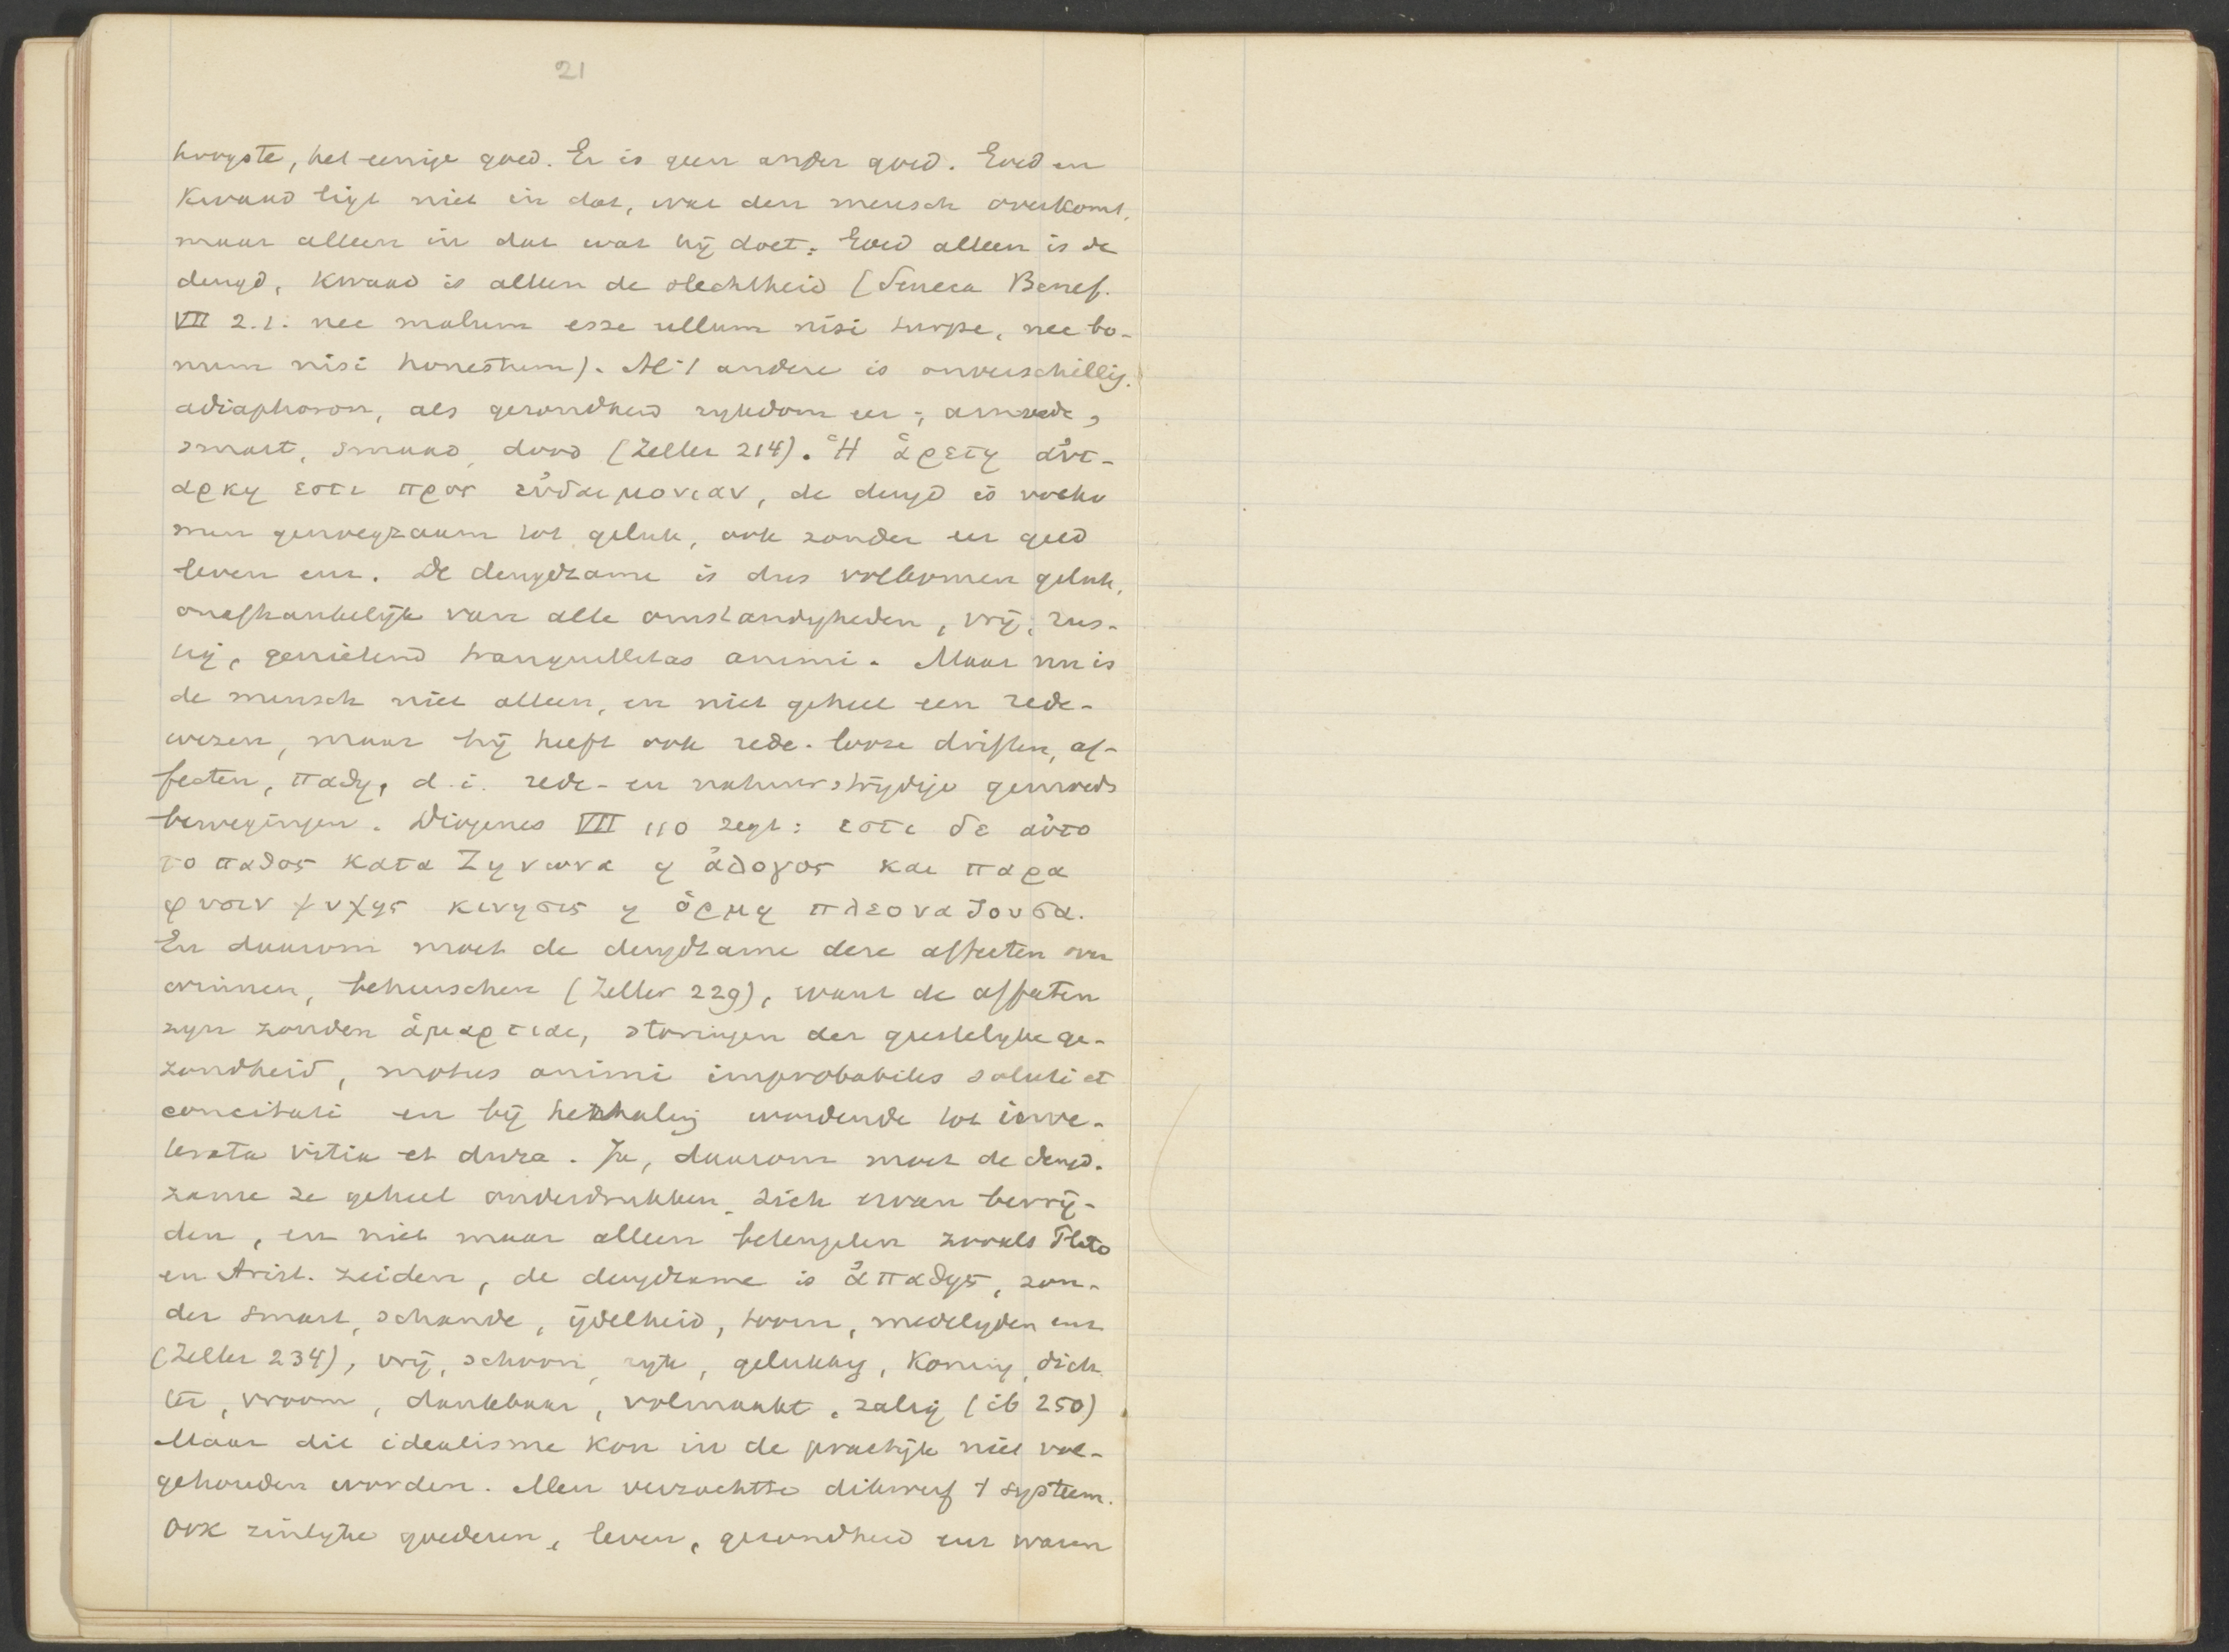 21
hoogste, het eenige goed. Er is geen ander goed. Goed en
kwaad ligt niet in dat, wat den mensch overkomt,
maar alleen in dat wat hij doet: Goed alleen is de
deugd, kwaad is alleen de slechtheid (Seneca Benef.
VII 2.1. nec malum esse ullum nisi turpe, nec bo-
num nisi honestum). Al 't andere is onverschillig.
adiaphoron, als gezondheid rykdom eer; armoede,
smart, smaad, dood (Zeller 214). Ἡ ἀρετη ἀυτ-
αρκη εστι προς εὐδαιμονιαν, de deugd is volko
men genoegzaam tot geluk, ook zonder eer goed
leven enz. De deugdzame is dus volkomen geluk,
onafhankelijk van alle omstandigheden, vrij, rus-
tig, genietend tranquillitas animi. Maar nu is
de mensch niet alleen, en niet geheel een rede-
wezen, maar hij heeft ook rede-looze driften, af-
fecten, παθη, d.i. rede- en natuurstrijdige gemoeds
bewegingen. Diogenes VII 110 zegt: εστι δε αὐτο
το παθος κατα Ζηνωνα ἡ ἀλογος και παρα
φυσιν ψυχης κινησις ἡ ὁρμη πλεοναζουσα.
En daarom moet de deugdzame deze affecten over
winnen, beheerschen (Zeller 229), want de affecten
zyn zonden ἁμαρτιαι, storingen der geestelyke ge-
zondheid, motus animi improbabiles soluti et
concitati en bij herhaling wordende tot inve-
terata vitia et dura. Ja, daarom moet de deugd-
zame ze geheel onderdrukken, zich ervan bevrij-
den, en niet maar alleen beteugelen zooals Plato
en Arist. zeiden, de deugdzame is ἀπαθης, zon-
der smart, schande, ijdelheid, toorn, medelyden enz
(Zeller 234), vrij, schoon, ryk, gelukkig, koning, dich
ter, vroom, dankbaar, volmaakt, zalig (ib 250)
Maar dit idealisme kon in de practijk niet vol-
gehouden worden. Men verzachtte dikwerf 't systeem.
Ook zinlyke goederen, leven, gezondheid enz waren